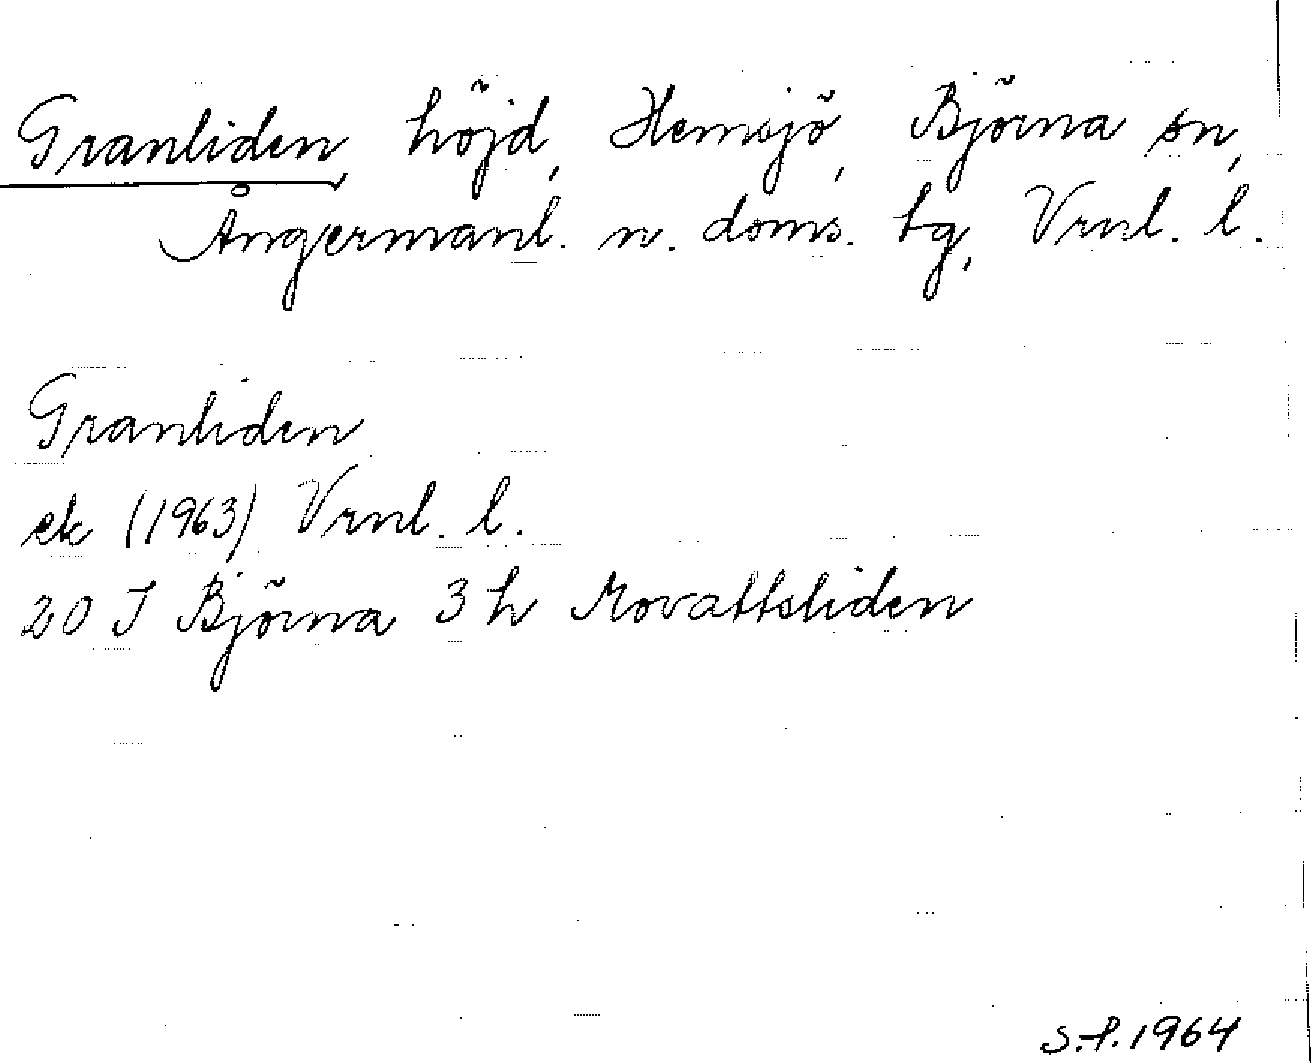 Granliden, höjd, Hemsjö, Björna sn,
Ångermanl. n. doms. tg, Vrnl. l.
Granliden
ek (1963) Vrnl. l.
20 I Björna 3 h Movattsliden
S.f. 1964